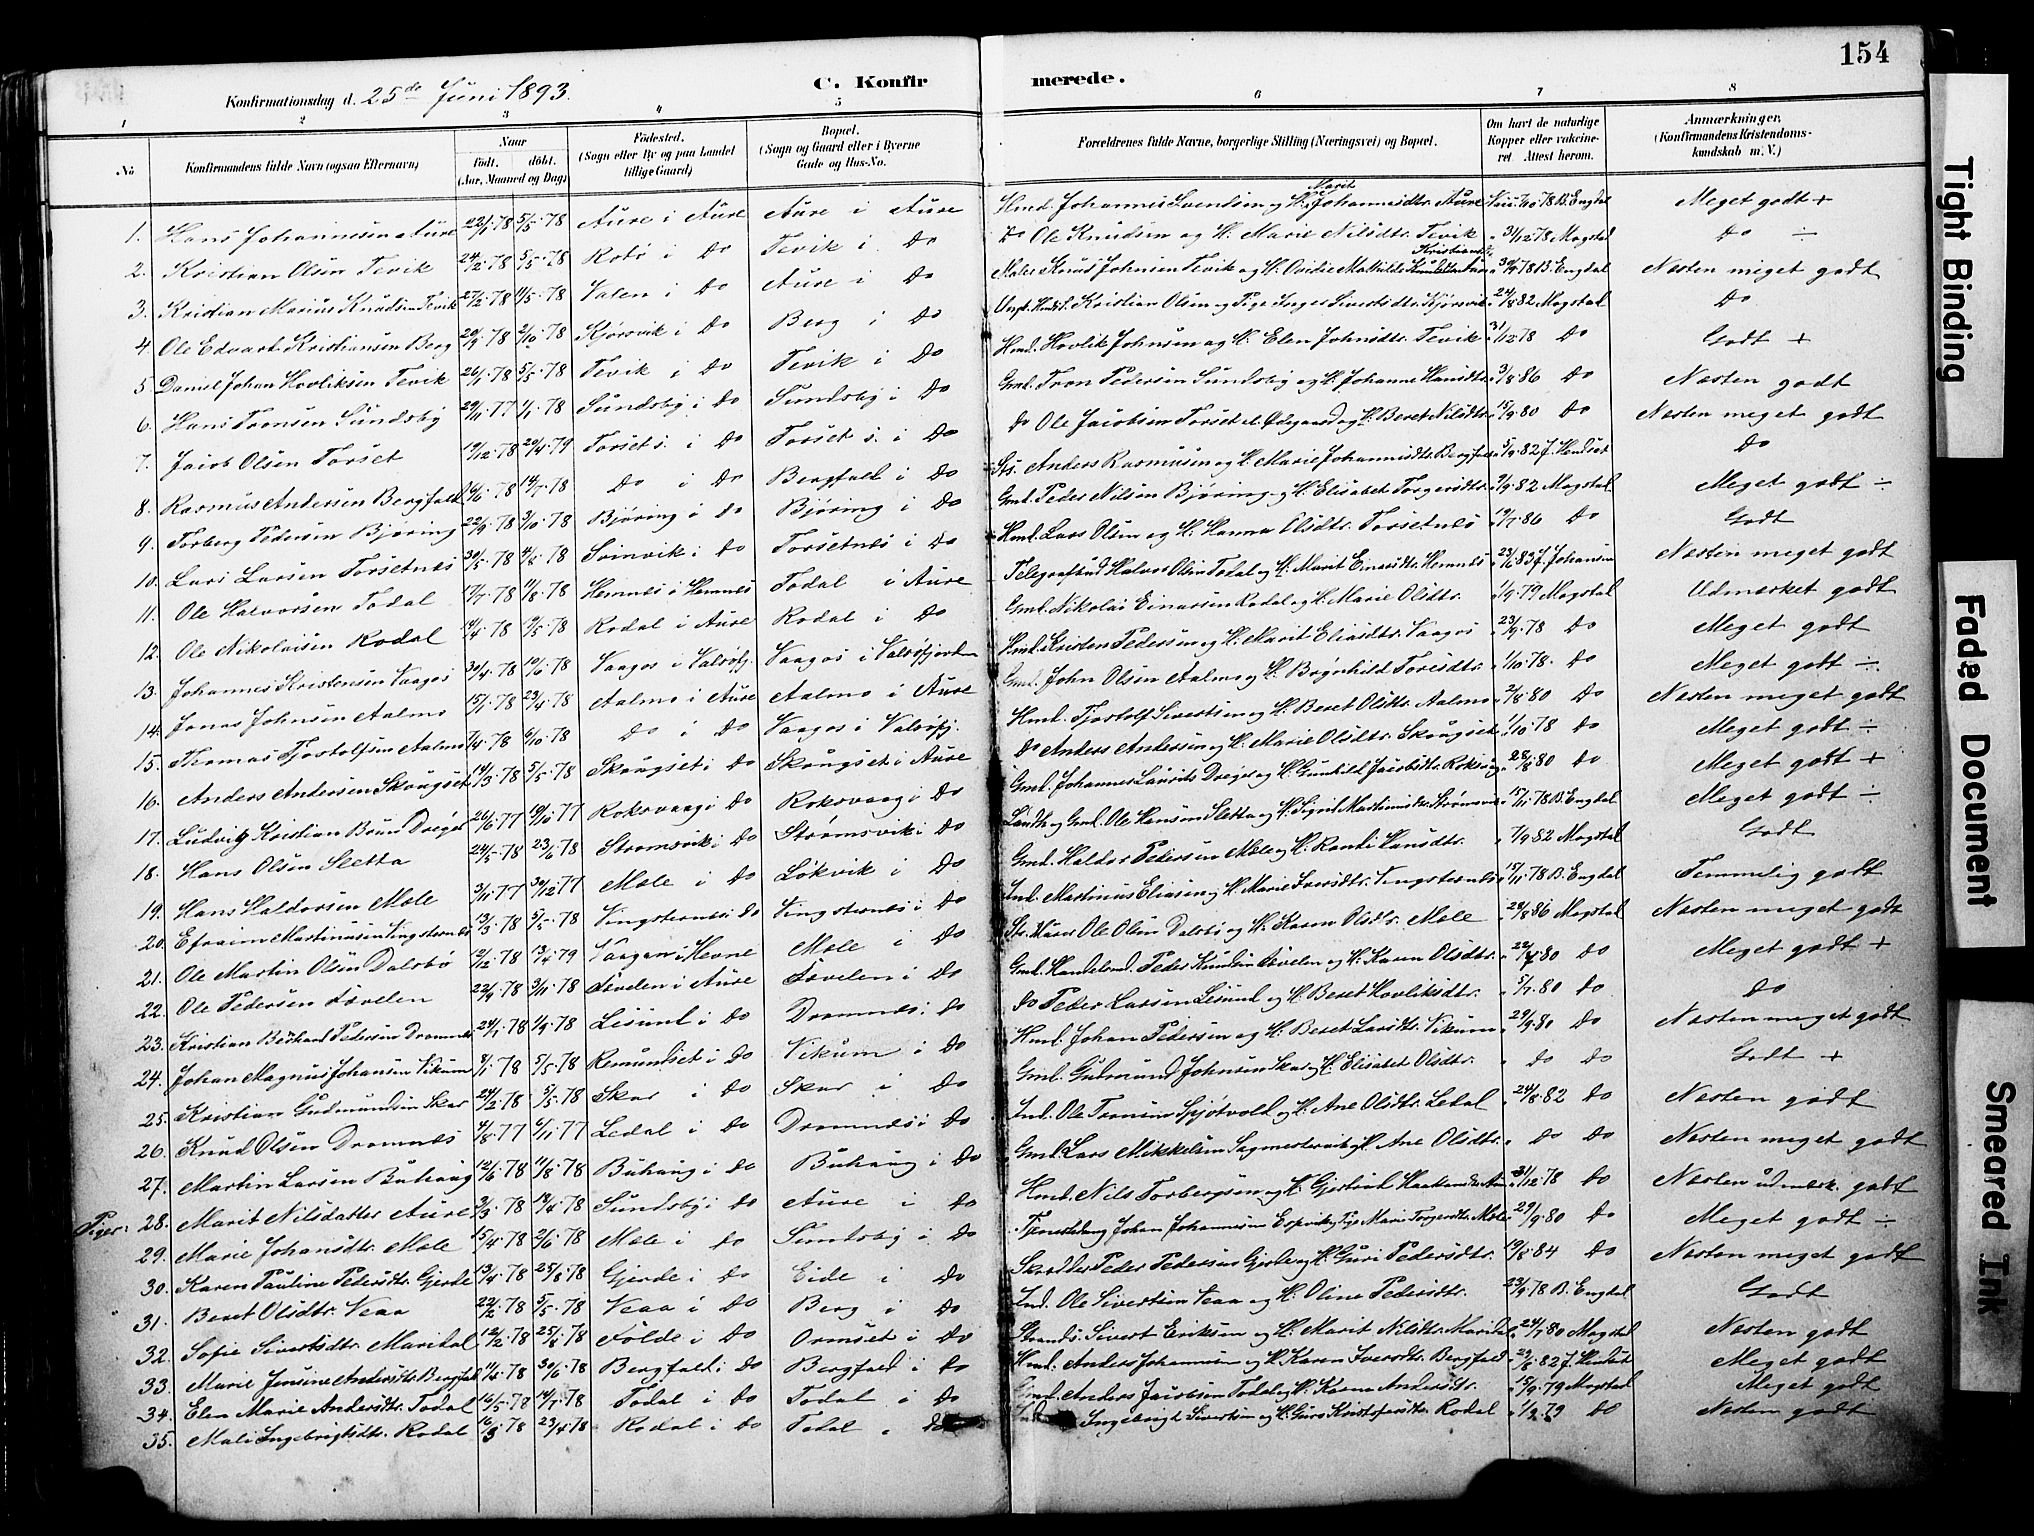 154
Konfirmationsdag d. 25de Juni 1893.
C. Konfirmerede.
1 2 3 4 5 6 7 8
No
Konfirmandens fulde Navn (ogsaa Efternavn)
Naar
født. døbt.
(Aar, Maaned og Dag)
Fødested.
(Sogn eller By og paa Landet
tillige Gaard)
Bopæl.
(Sogn og Gaard eller i Byerne
Gade og Hus-No.
Forældrenes fulde Navne, borgerlige Stilling (Næringsvei) og Bopæl.
Om havt de naturlige
Kopper eller vakcine-
ret. Attest herom.
Anmærkninger.
(Konfirmandens Kristendoms-
kundskab m. V.)
1. Hans Johannesen Aure 22/1 78 5/5 78 Aure i Aure Aure i Aure Hmd. Johannes Svendsen og H. Marit Johannesdtr. Aure 78 B. Engdal Meget godt +
2. Kristian Olsen Tevik 24/2 78 5/5 78 Rotø i do Tevik i do Do Ole Knudsen og H. Marie Nilsdtr. Tevik 31/12 78 Magstal do ÷
3. Kristian Marius Knudsen Tevik 27/2 78 11/5 78 Valen i do Aure i do Maler Knud Johnsen Tevik og H. Ovidie Mathilde 78 B. Engdal Næsten meget godt
4. Ole Edvart Kristiansen Berg 20/9 78 2/10 78 Kjørsvik i do Berg i do Kristian Olsen og Pige Inger Sivertsdtr. Kjørsvik 24/8 82 Magstal Do
5. Daniel Johan Hovliksen Tevik 26/1 78 5/5 78 Tevik i do Tevik i do Hmd. Hovlik Johnsen og H. Elen Johnsdtr. Tevik 31/12 78 do Godt +
6. Hans Tronsen Sundsby 29/11 77 1/1 78 Sundsby i do Sundsby i do Gmd. Tron Pedersen Sundsby og H. Johanne Hansdtr. 3/8 86 do Næsten godt
7. Jacob Olsen Torset 19/12 78 20/4 79 Torset s. i do Torset s. i do do Ole Jacobsen Torset el. Ødegaard og H. Beret Nilsdtr. 15/9 80 do Næsten meget godt
8. Rasmus Andersen Bergfald 16/6 78 14/7 78 do i do Bergfald i do Anders Rasmussen og H. Marie Johannesdtr. Bergfald 5/9 82 J. Hendset do
9. Torberg Pedersen Bjøring 22/9 78 3/10 78 Bjøring i do Bjøring i do Gmd. Peder Nilsen Bjøring og H. Elisabet Torgersdtr. 7/9 82 Magstal Meget godt ÷
10. Lars Larsen Torsetnes 30/5 78 4/8 78 Svinvik i do Torsetnes i do Hmd. Lars Olsen og H. Hanna Olsdtr. Torsetnes 19/7 86 do Godt
11. Ole Halvorsen Todal 17/7 78 11/8 78 Hemnes i Hemnes Todal i Aure Telegrafbud Halvor Olsen Todal og H. Marit Einarsdtr. Hemnes 23/6 83 J. Johansen Næsten meget godt
12. Ole Nikolaisen Rodal 14/4 78 78 Rodal i Aure Rodal i do Gmd. Nikolai Einarsen Rodal og H. Marie Olsdtr. 1/9 79 Magstal Udmærket godt
13. Johannes Kristensen Vaagos 30/4 78 10/6 78 Vaagos i Valsøfj. Vaagos i Valsøfjorden Hmd. Kristen Pedersen og H. Marit Eliasdtr. Vaagos 23/9 78 do Meget godt
14. Jonas Johnsen Aalmo 15/1 78 23/4 78 Aalmo i Aure Aalmo i Aure Gmd. John Olsen Aalmo og H. Brynhild Toresdtr. 1/10 78. do Meget godt ÷
15. Thomas Tjostolfsen Aalmo 7/4 78 6/10 78 do i do Vaagos i Valsøfj. Hmd. Tjostolf Sivertsen og H. Beret Olsdtr. Aalmo 2/8 80 do Næsten meget godt
16. Anders Andersen Skougset 14/3 78 5/5 78 Skougset i do Skougset i Aure do Anders Andersen og H. Marie Olsdtr. Skougset 1/10 78 do Meget godt ÷
17. Ludvig Kristian Brun Drejer 26/6 77 10/10 77 Roksvaag i do Roksvaag i do Gmd. Johannes Laurits Drejer og H. Gunhild Jacobsdtr. Roksvaag 28/8 80 do Meget godt +
18. Hans Olsen Sletta 24/5 78 23/6 78 Strømsvik i do Strømsvik i do Landh. og Gmd. Ole Hansen Sletta og H. Sigrid Martinusdtr. 15/11 78 B. Engdal Meget godt ÷
19. Hans Haldorsen Mole 3/11 77 30/12 77 Mole i do Løkvik i do Gmd. Haldor Pedersen Mole og H. Randi Hansdtr. 7/9 82 Magstal Godt
20. Efraim Martinusen Vingsternes 13/3 78 5/5 78 Vingsternes i do Vingsternes i do Ind. Martinus Eliasen og H. Marie Iversdtr. Vingsternes 15/11 78 B. Engdal Temmelig godt
21. Ole Martin Olsen Dalsbø 12/12 78 13/4 79 Vaagan i Hevne Mole i do Ole Olsen Dalsbø og H. Karen Olsdtr. Mole 28/8 86 Magstal Næsten meget godt
22. Ole Pedersen Stevelen 22/9 78 3/11 78 Stevelen i Aure Stevelen i do Gmd. Handelsmd. Peder Knudsen Stevelen og H. Karen Olsdtr. 22/7 80 do Meget godt +
23. Kristian Pedersen Dromnes 24/7 78 1/9 78 Lesund i do Dromnes i do do Peder Larsen Lesund og H. Beret Hovliksdtr. 5/7 80 do do
24. Johan Magnus Johansen Vikum 8/1 78 5/5 78 Remundset i do Vikum i do Hmd. Johan Pedersen og H. Beret Larsdtr. Vikum 29/9 80 do Næsten meget godt
25. Kristian Gudmundsen Skar 24/2 78 5/5 78 Skar i do Skar i do Gmd. Gudmund Johnsen Skar og H. Elisabet Olsdtr. do do Godt +
26. Knud Olsen Dromnes 4/8 77 4/11 77 Ledal i do Dromnes i do Ind. Ole Tronsen Spjøtvold og H. Ane Olsdtr. Ledal 24/8 82 do Næsten godt
27. Martin Larsen Buhaug 12/6 78 11/8 78 Buhaug i do Buhaug i do Gmd. Lars Mikkelsen og H. Ane Olsdtr. do do Næsten meget godt
Piger: 28. Marit Nilsdatter Aure 3/3 78 14/4 78 Sundsby i do Aure i do Hmd. Nils Torbergsen og H. Gjertrud 31/12 78 do Næsten udmærk. godt
29. Marie Johansdtr. Mole 15/4 78 2/6 78 Mole i do Sundsby i do Johan Johannesen Espvik og Pige Marie Torgersdtr. Mole 29/9 80 do Meget godt ÷
30. Karen Pauline Pedersdtr. Gjerde 13/4 78 25/8 78 Gjerde i do Eide i do Skrædder Peder Pedersen Gjerde og H. Guri Pedersdtr. 19/8 84 do Næsten meget godt
31. Beret Olsdtr. Veaa 22/2 78 5/5 78 Veaa i do Berg i do Ind. Ole Sivertsen Veaa og H. Oline Pedersdtr. 23/9 78 B. Engdal Godt
32. Sofie Sivertsdtr. Maridal 12/2 78 25/8 78 Folde i do Ormset i do Strands. Sivert Eriksen og H. Marit Nilsdtr. Maridal 24/7 80 Magstal Næsten godt
33. Marie Jensine Andersdtr. Bergfald 11/4 78 30/6 78 Bergfald i do Bergfald i do Hmd. Anders Johannesen og H. Karen Iversdtr. Bergfald 82 J. Hendset Meget godt
34. Elen Marie Andersdtr. Todal 16/5 78 14/7 78 Todal i do Todal i do Gmd. Anders Jacobsen Todal og H. Karen Andersdtr. 15/9 79 Magstal Meget godt
35. Mali Ingebrigtsdtr. Rodal 16/3 78 23/4 78 Rodal i do Todal " do Ingebrigt Sivertsen og H. Guro Kristofersdtr. Rodal 1/9 79 do Næsten godt
Tight Binding
Faded Document
Smeared Ink